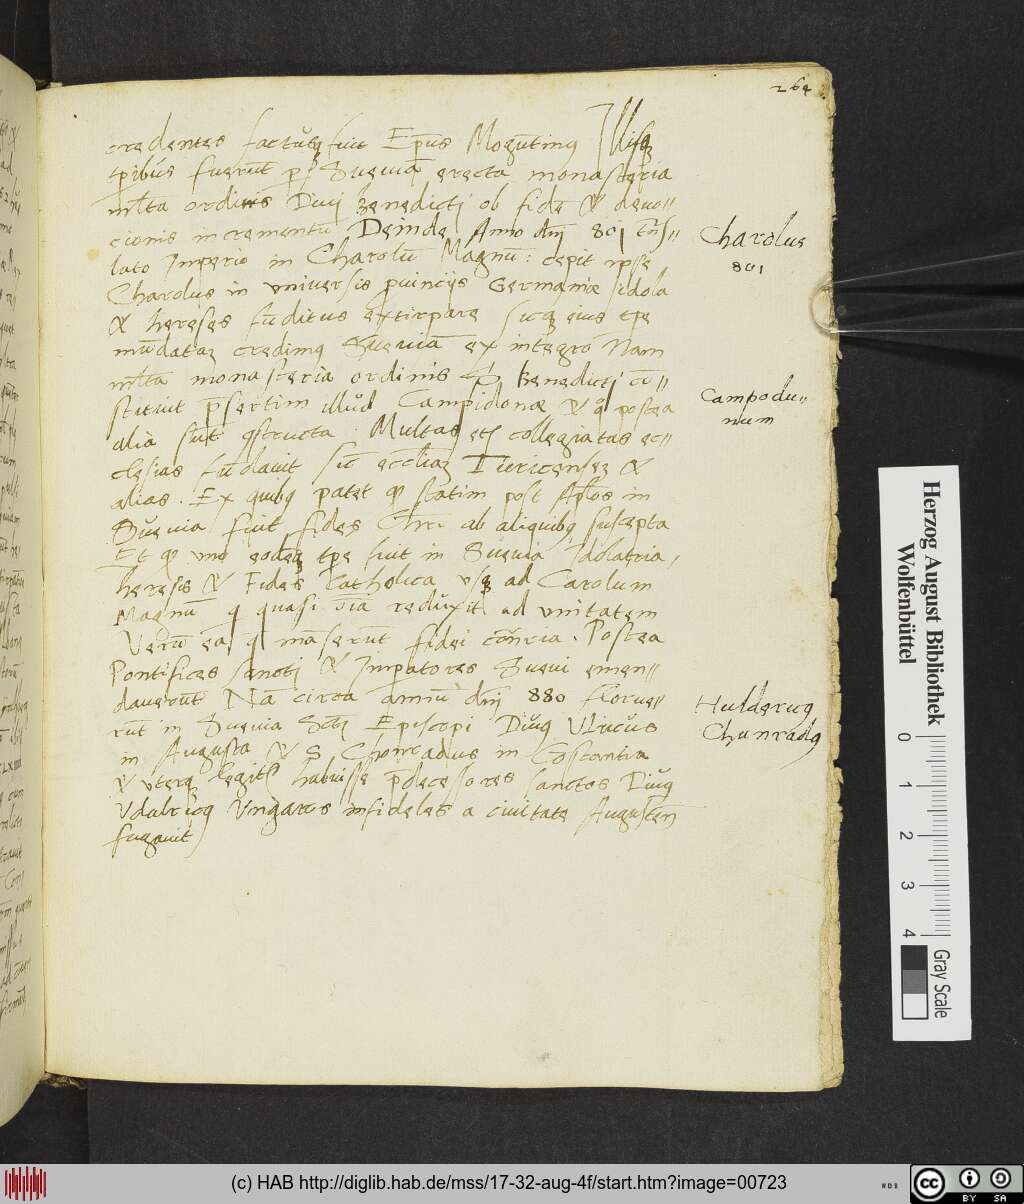 264
credentes factusq fuit Ep̄us Mogūtinꝰ Illisq
tp̄ibus fuerūt p̱ Sueuiā erecta monasteria
ml̄ta ordinis Diui Benedicti ob fidē & deuo=
cionis incrementū Deinde Anno dn̄i 801 trās=
lato Imperio in Charolū Magnū: cepit ipse
Charolus in vniuersis ꝓuincijs Germaniæ idola
& hereses fūditus extirpare sicq eius tp̄e
mūdataꝫ credimꝰ Sueuiā ex integro Nam
ml̄ta monasteria ordinis S. Benedicti cō=
stituit p̄sertim illud Campidonæ & postea
alia sūt ꝯstructa. Multas etā collegiatas ec=
clesias fūdauit sic ecclīaꝫ Turicenseꝫ &
alias. Ex quibꝰ patet ꝙ statim post Apl̄os in
Sueuia fuit fides Chrī ab aliquibꝰ suscepta
Et ꝙ vno eodēꝫ tp̄e fuit in Sueuia Idolatria,
heresis & Fides Catholica vsq ad Carolum
Magnū q quasi oīa reduxit ad vnitatem
Verū ea q māserūt fidei cōtraria. Postea
Pontifices sancti & Imp̱atores Sueui emen=
dauerūt Nā circa annū dn̄i 880 florue=
rūt in Sueuia Scti Episcopi Diuꝰ Vlricus
in Augusta & S Chonradus in Cōstantia
& vterq legit habuisse p̄decessores sanctos Diuꝰ
Vdalricꝰ Vngaros infideles a ciuitate Augusteñ
fugauit
Charolus
801
Campodu=
num
Huldericꝰ
Chunradꝰ
Herzog August Bibliothek
Wolfenbüttel
0 1 2 3 4
Gray Scale
(c) HAB http://diglib.hab.de/mss/17-32-aug-4f/start.htm?image=00723
WDB
cc BY SA